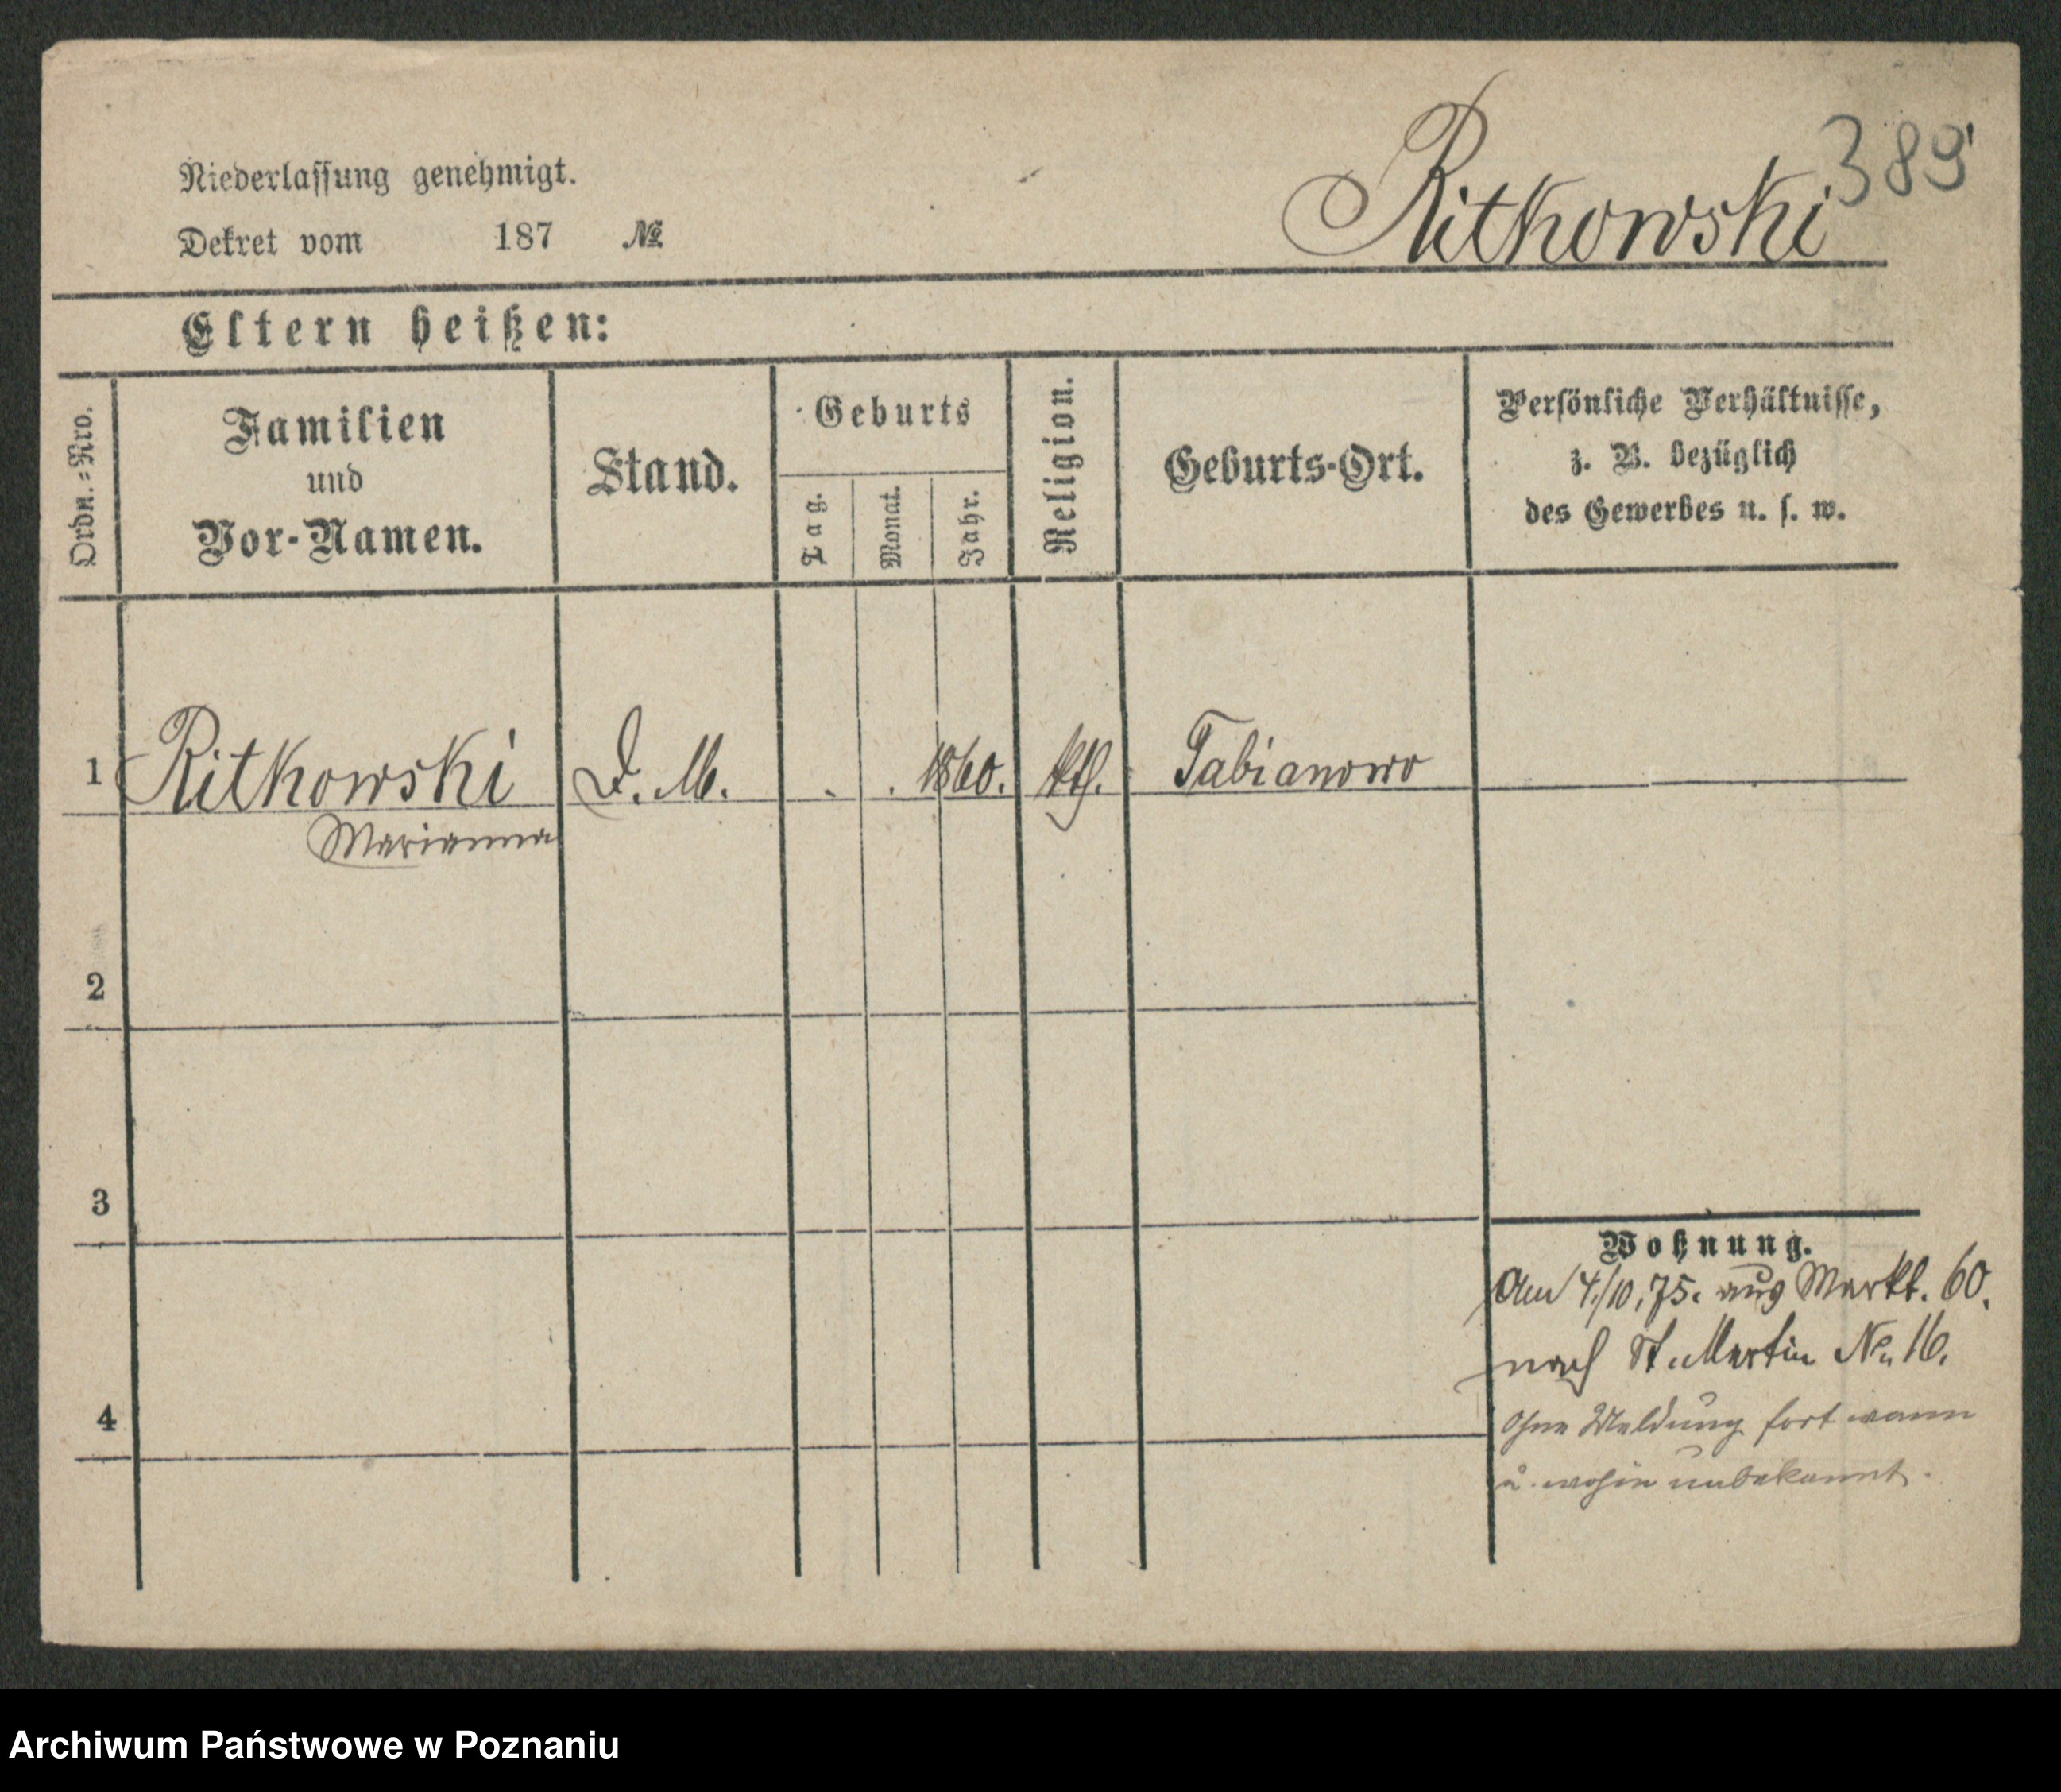 389
Ritkowski
Niederlassung genehmigt.
Dekret vom 187 №
Eltern heißen:
Ordn.=Nro.
Familien
und
Vor-Namen.
Stand.
Geburts
Tag.
Monat.
Jahr.
Religion.
Geburts-Ort.
Persönliche Verhältnisse,
z. B. bezüglich
des Gewerbes u. s. w.
1 Ritkowski D. M. . . 1860. kth. Fabianowo
Marianna
2
3
4
Wohnung.
Am 4/10.75. aus Markt. 60.
nach St. Martin No 16.
Ohne Meldung fort wann
u. wohin unbekannt.
Archiwum Państwowe w Poznaniu